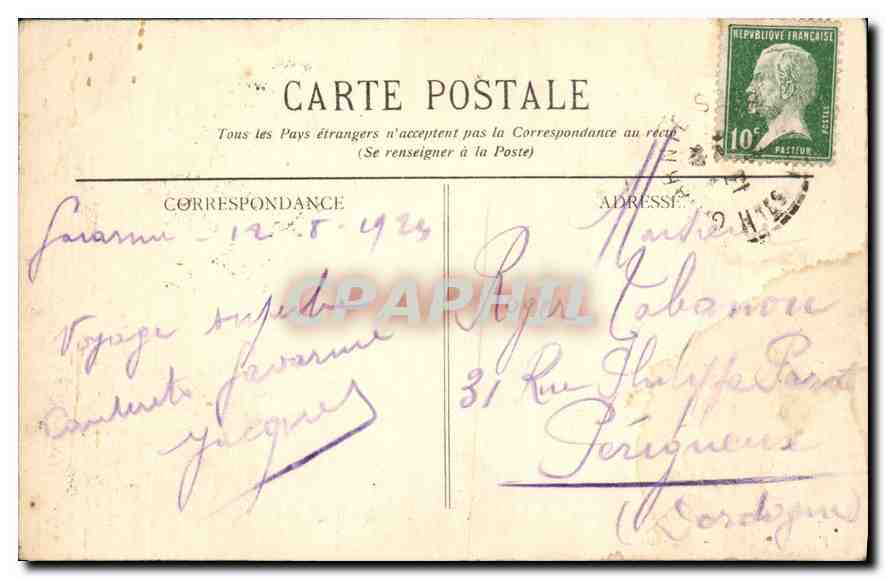 REPUBLIQUE FRANÇAISE
10c
POSTES
PASTEUR
CARTE POSTALE
Tous les Pays étrangers n'acceptent pas la Correspondance au recto
(Se renseigner à la Poste)
CORRESPONDANCE
Gavarnie - 12 - 8 - 192
Voyage superbe
Cauterets Gavarnie
Jacques
ADRESSE
Monsieur
Roger Tabanou
31 Rue Philippe Parot
Périgueux
(Dordogne)
CPAPHIL